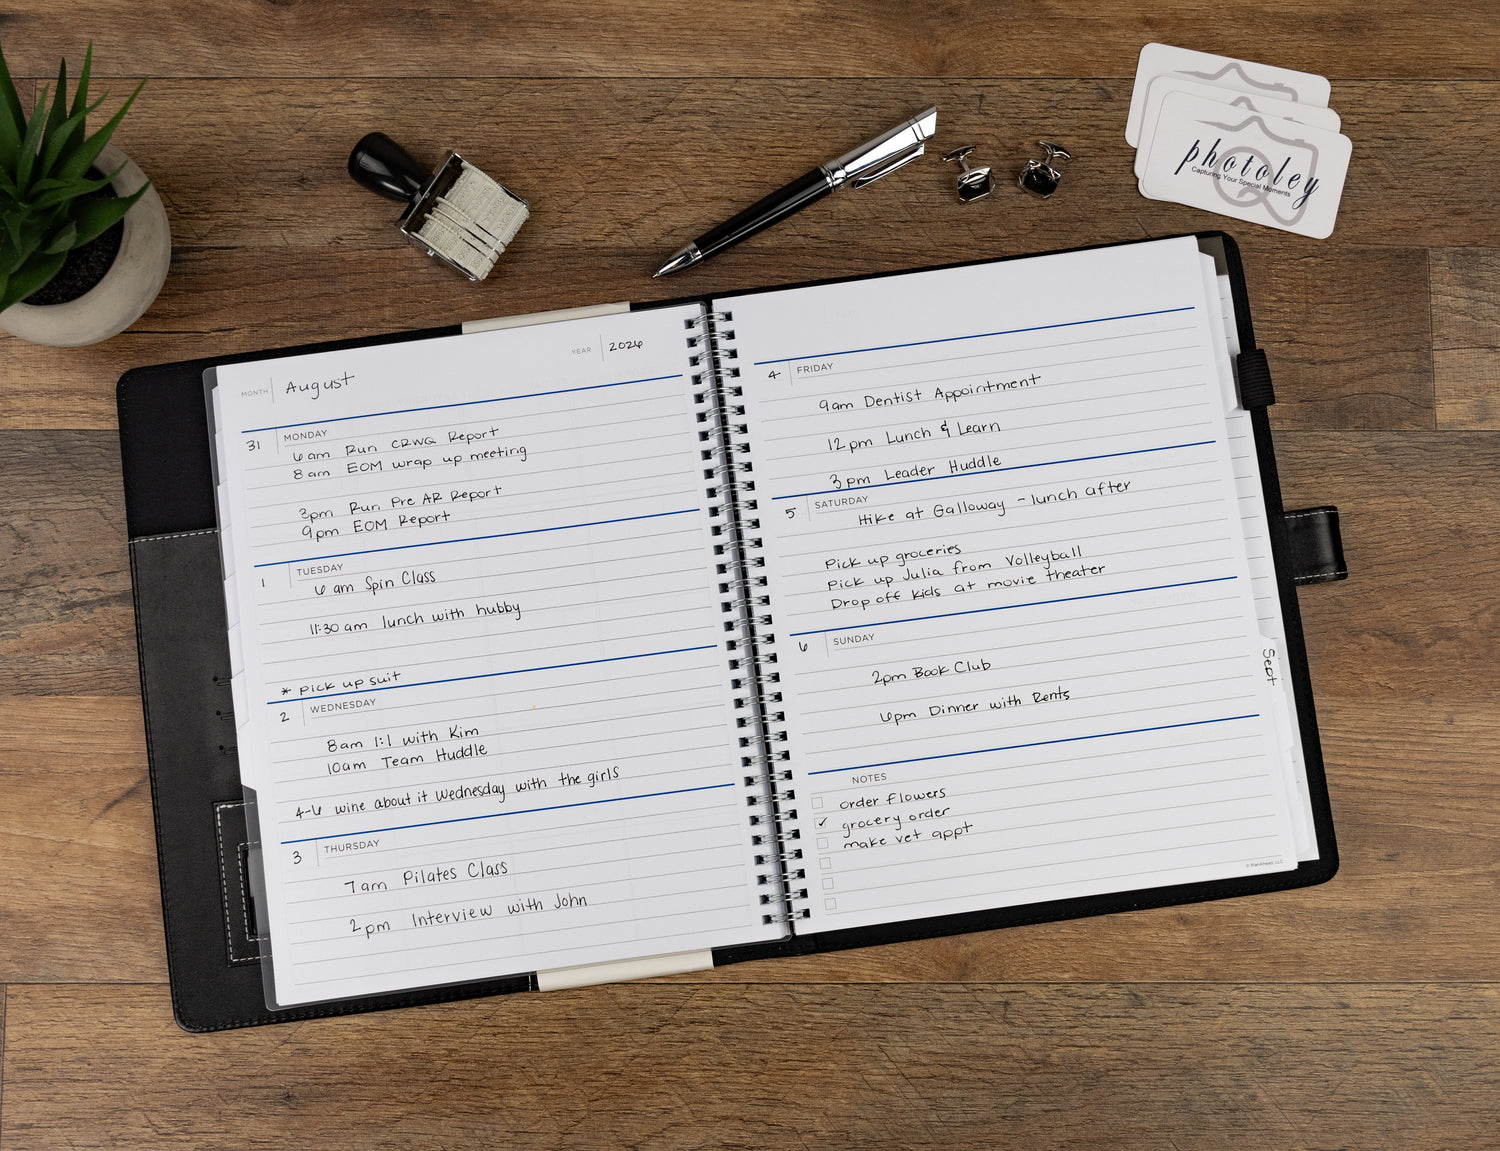 photoley
Capturing Your Special Moments
MONTH August
YEAR 2026
31 MONDAY
6 am Run CRWQ Report
8 am EOM wrap up meeting
3pm Run Pre AR Report
9pm EOM Report
1 TUESDAY
6 am Spin Class
11:30 am lunch with hubby
* pick up suit
2 WEDNESDAY
8am 1:1 with Kim
10am Team Huddle
4-6 wine about it Wednesday with the girls
3 THURSDAY
7am Pilates Class
2pm Interview with John
4 FRIDAY
9am Dentist Appointment
12pm Lunch & Learn
3pm Leader Huddle
5 SATURDAY
Hike at Galloway - lunch after
Pick up groceries
Pick up Julia from Volleyball
Drop off kids at movie theater
6 SUNDAY
2pm Book Club
6pm Dinner with Rents
NOTES
order flowers
✓ grocery order
make vet appt
© PlanAhead, LLC
Sept